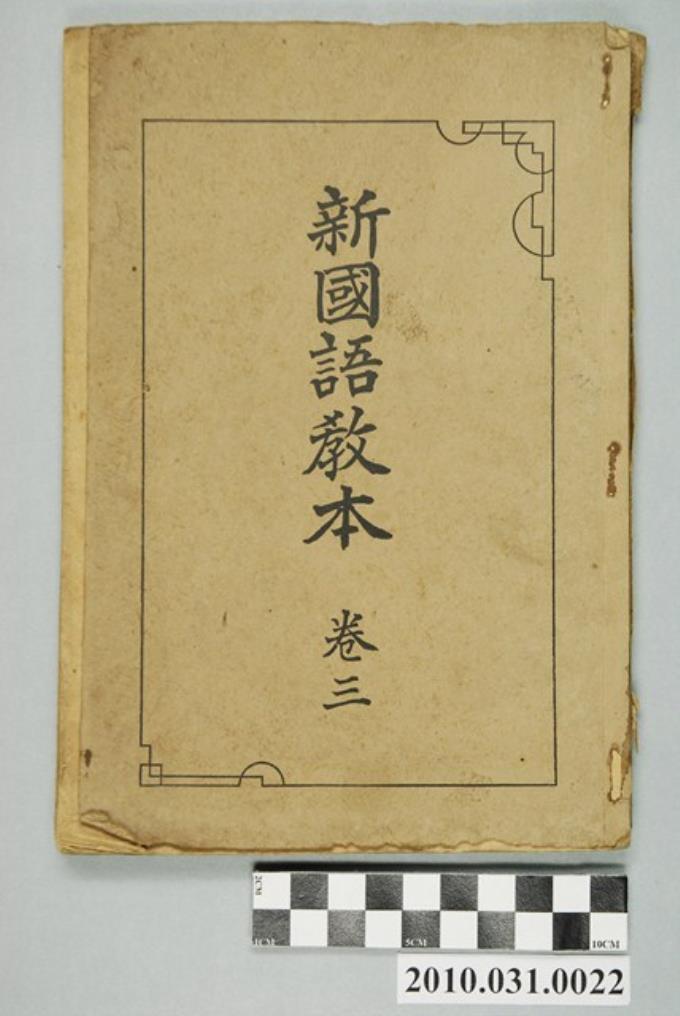 新國語教本
卷三
2CM
1CM 5CM 10CM
2010.031.0022